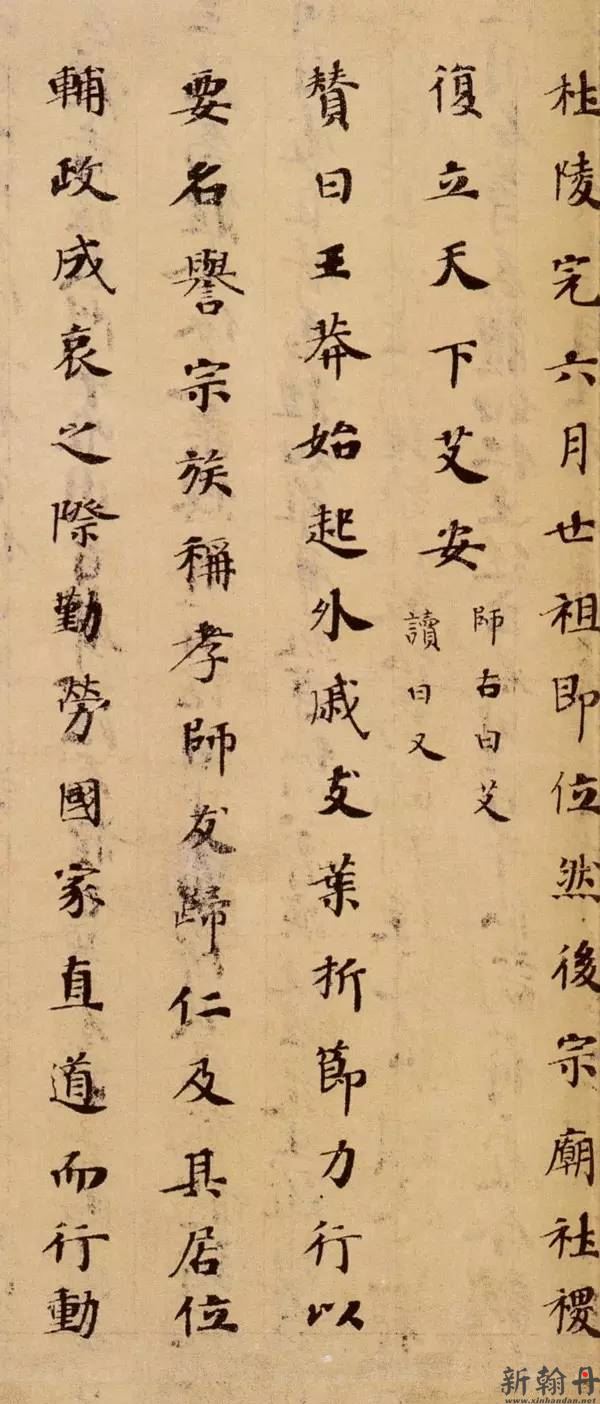 杜陵完六月世祖即位然後宗廟社稷
復立天下艾安
師古曰艾
讀曰乂
贊曰王莽始起外戚支葉折節力行以
要名譽宗族稱孝師友歸仁及其居位
輔政成哀之際勤勞國家直道而行動
新翰丹
www.xinhandan.net